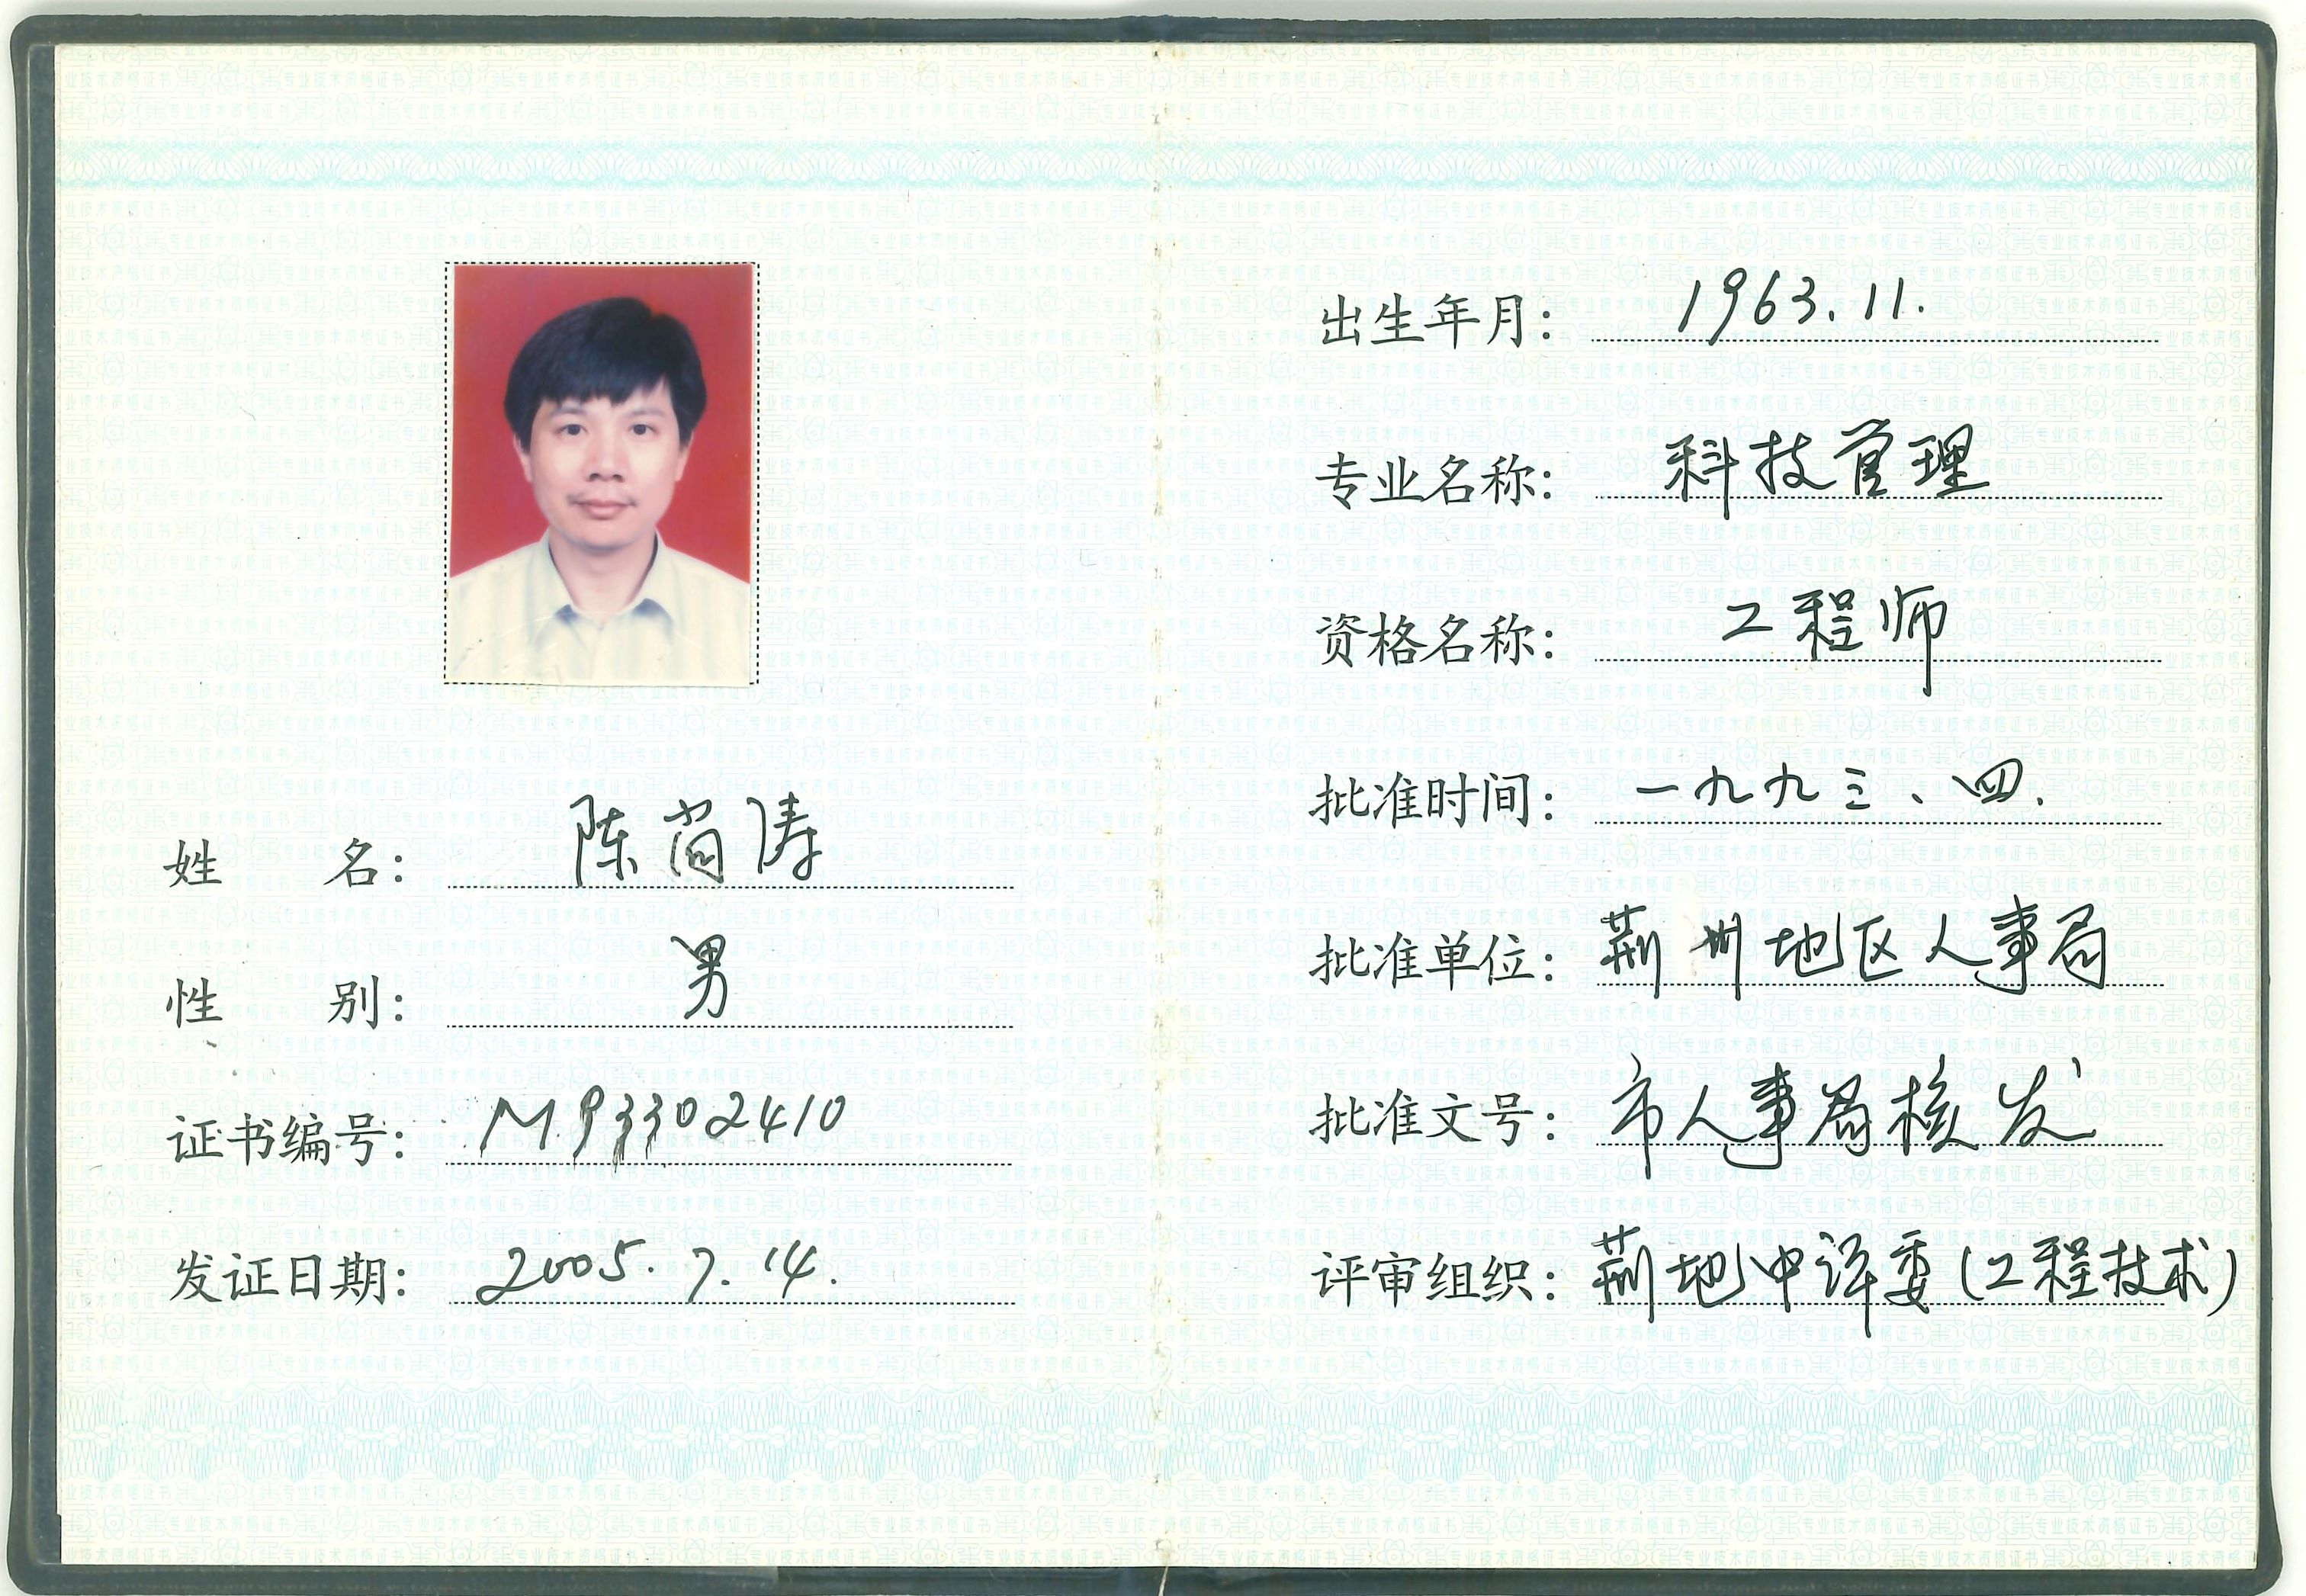 姓 名： 陈尚涛
性 别： 男
证书编号： M93302410
发证日期： 2005.7.14.
出生年月： 1963.11.
专业名称： 科技管理
资格名称： 工程师
批准时间： 一九九三、四.
批准单位： 荆州地区人事局
批准文号： 市人事局核发
评审组织： 荆地中评委(工程技术)